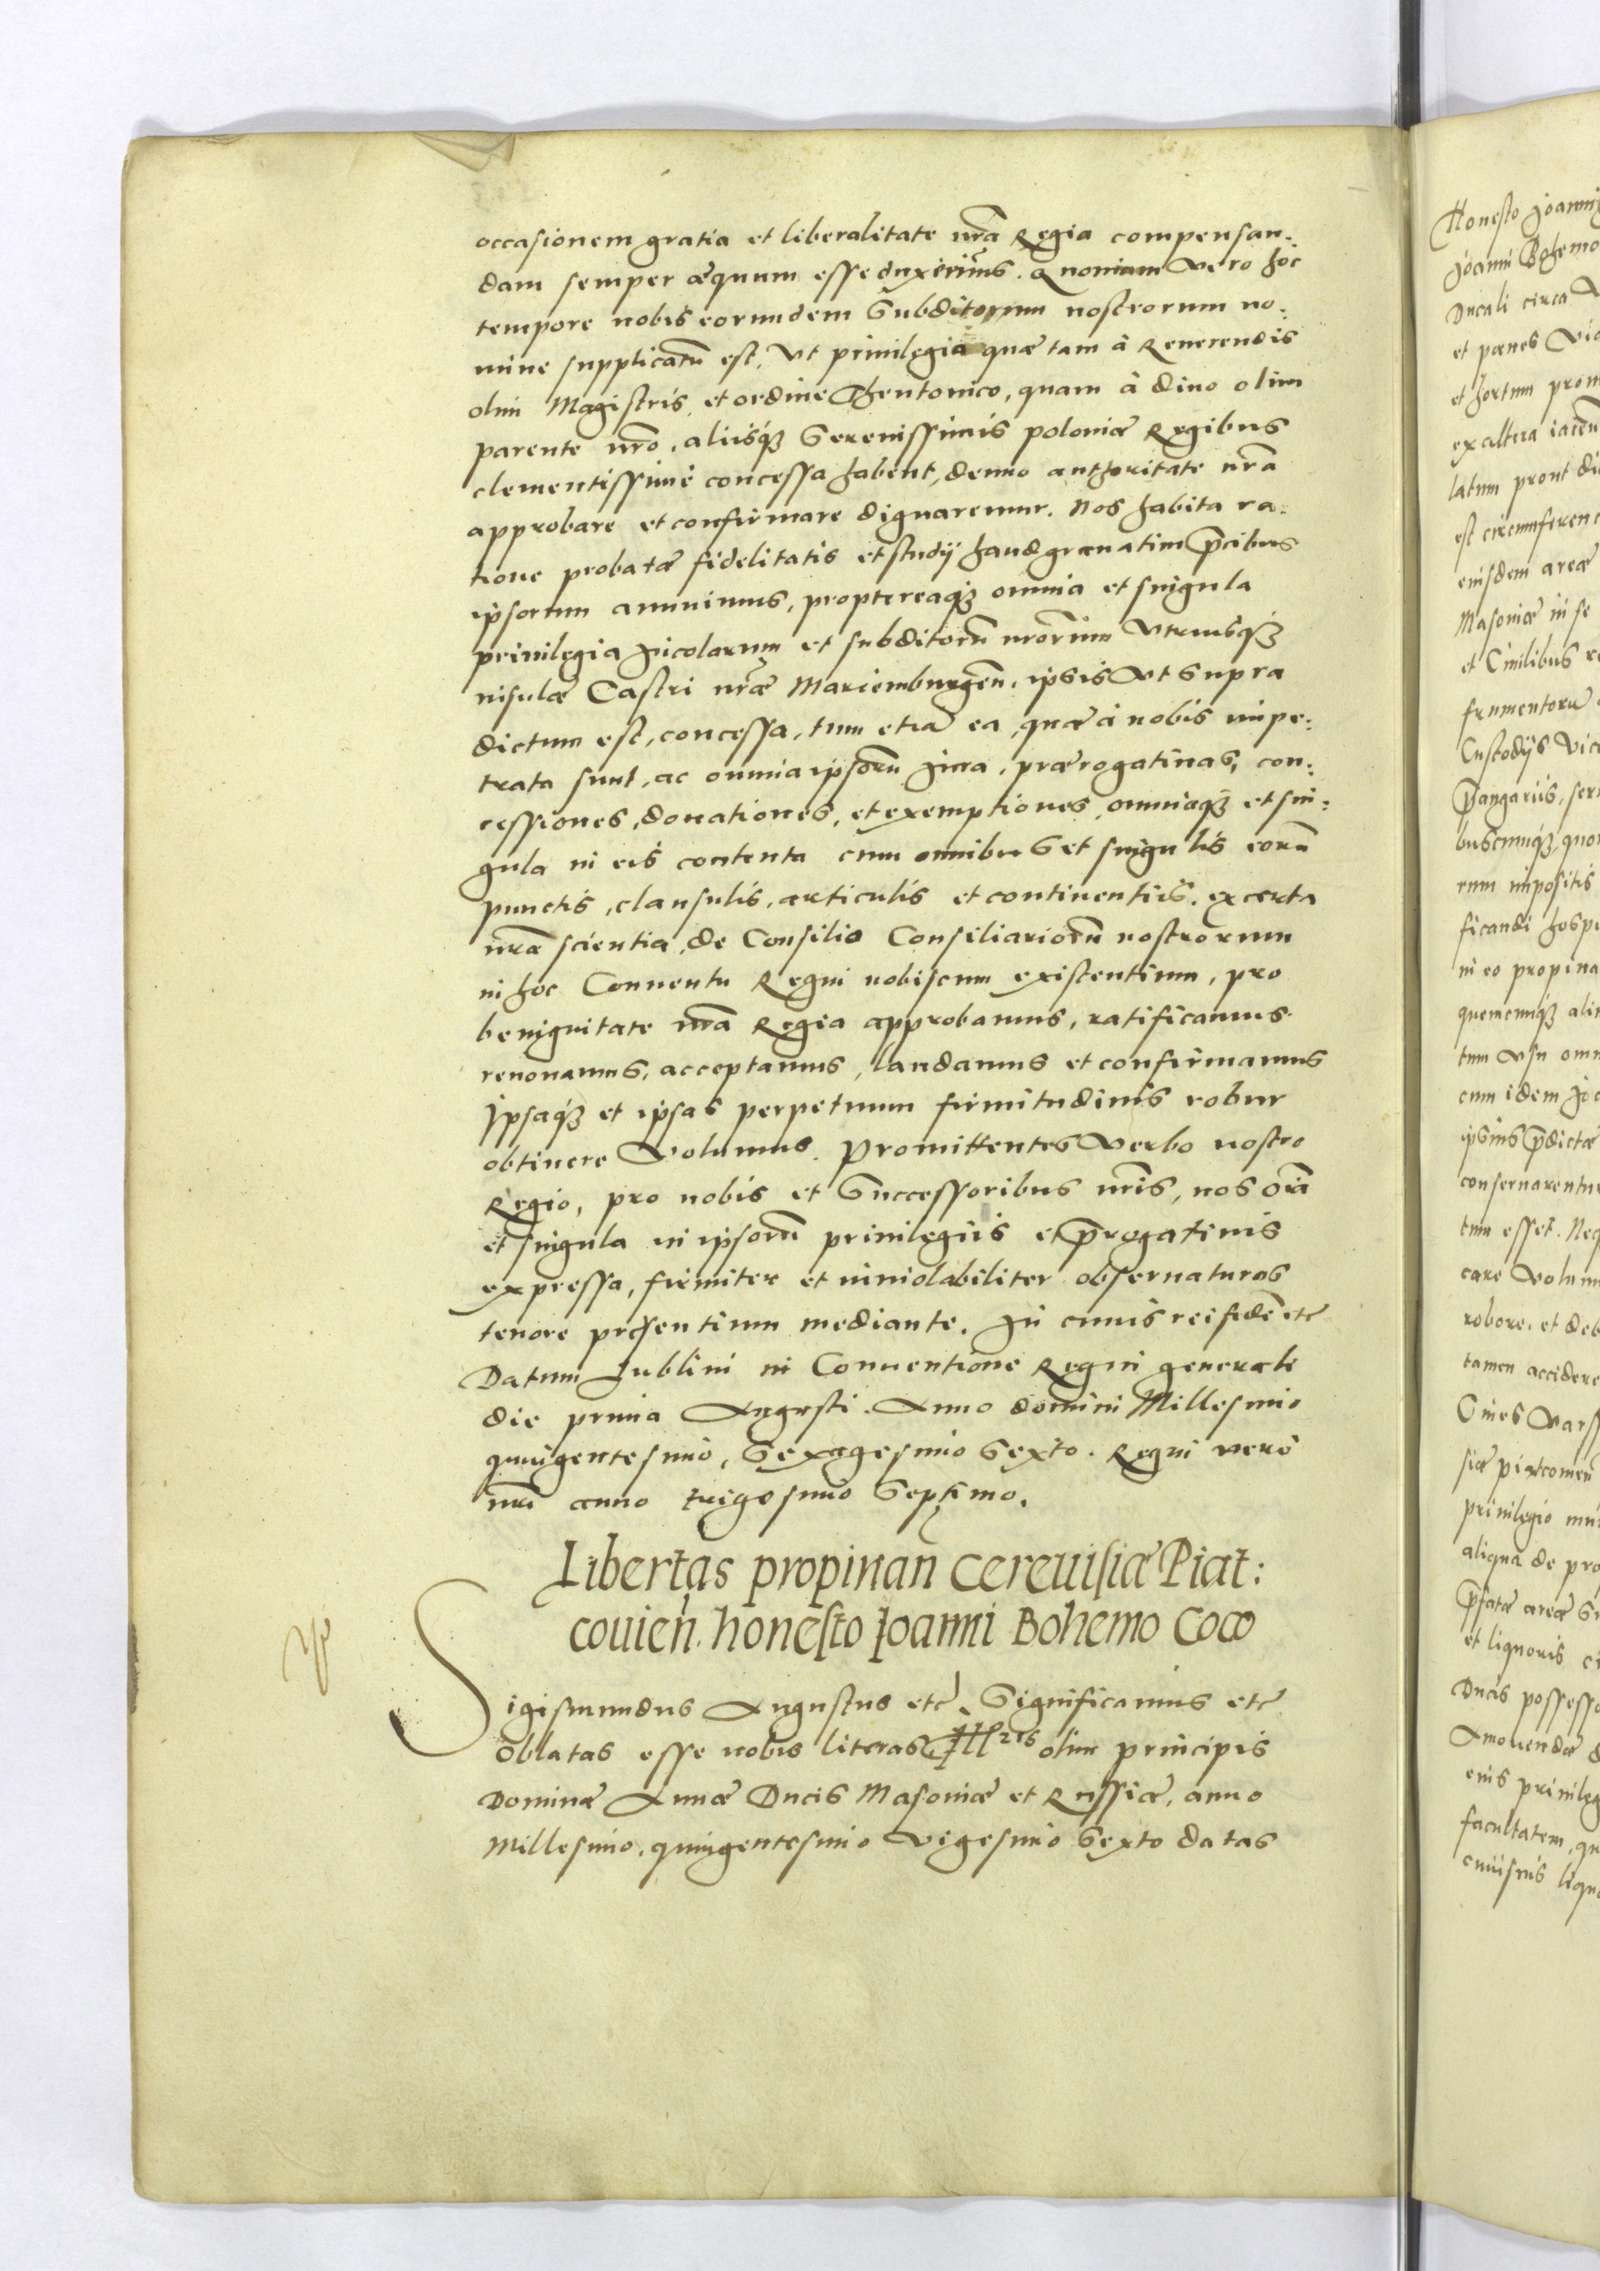 occasionem gratia et liberalitate nr̃a Regia compensan-
dam semper æquum esse duxerimus. Quoniam vero hoc
tempore nobis eorundem Subditorum nostrorum no-
mine supplicatũ est, Vt priuilegia quæ tam à Reuerendis
olim Magistris et ordine Theutonico, quam à diuo olim
parente nr̃o, alijsq3 Serenissimis poloniæ Regibus
clementissimè concessa habent, denuo authoritate nr̃a
approbare et confirmare dignaremur. Nos habita ra-
tione probatæ fidelitatis et studij haud grauatim p̃cibus
ipsorum annuimus, proptereaq3 omnia et singula
priuilegia Incolarum et subditorũ nrorum Vtriusq3
insulæ Castri nr̃æ Mariemburgeñ. ipsis Vt supra
dictum est, concessa, tum etiã ea, quæ à nobis impe-
trata sunt, ac omnia ipsorũ Iura, prærogatiuas, con-
cessiones, donationes, et exemptiones, omniaq3 et sin-
gula in eis contenta cum omnibus et singulis eorũ
punctis, clausulis, articulis et continentijs, ex certa
nr̃a scientia, de Consilio Consiliariorũ nostrorum
in hoc Conuentu Regni nobiscum existentium, pro
benignitate nr̃a Regia approbamus, ratificamus
renouamus, acceptamus, laudamus et confirmamus
Ipsaq3 et ipsas perpetuum firmitudinis robur
obtinere Volumus. Promittentes Verbo nostro
Regio, pro nobis et Successoribus nr̃is, nos oĩa
et singula in ipsorũ priuilegijs et p̃rogatiuis
expressa, firmiter et inuiolabiliter obseruaturos
tenore præsentium mediante. In cuius rei fidẽ etc
Datum Lublini in Conuentione Regni generali
die prima Augusti. Anno domini Millesimo
quingentesimo, Sexagesimo Sexto. Regni verò
nr̃i anno trigesimo Septimo.
Libertas propinan̄ cereuisiæ Piat:
couien̄. honesto Joanni Bohemo Coco
Sigismundus Augustus etc. Significamus etc
Oblatas esse nobis literas Ill res olim principis
Dominæ Annæ Ducis Masouiæ et Russiæ, anno
Millesimo, quingentesimo Vigesimo Sexto datas
Honesto Joanni
Joanni Bohemo
Ducali circa
et pænes
et hortum
ex altera
latum prout
est
eiusdem areæ
Masouiæ in se
et Ciuilibus
frumentorũ
Custodijs
Pangarijs,
buscunq3, quo
rum impositis
ficandi
in eo propina
quemcunq3
tum vsu
cum idem
ipsius p̃dictæ
conseruarentur
tum esset. Neq
care Volum
robore, et deb
tamen accidere
Ciues
siæ
priuilegio
aliqua de pro
p̃fatæ areæ
et liquoris
Ducis possess
Amouendæ
eius priuileg
facultatem, qu
cuiusuis liqu